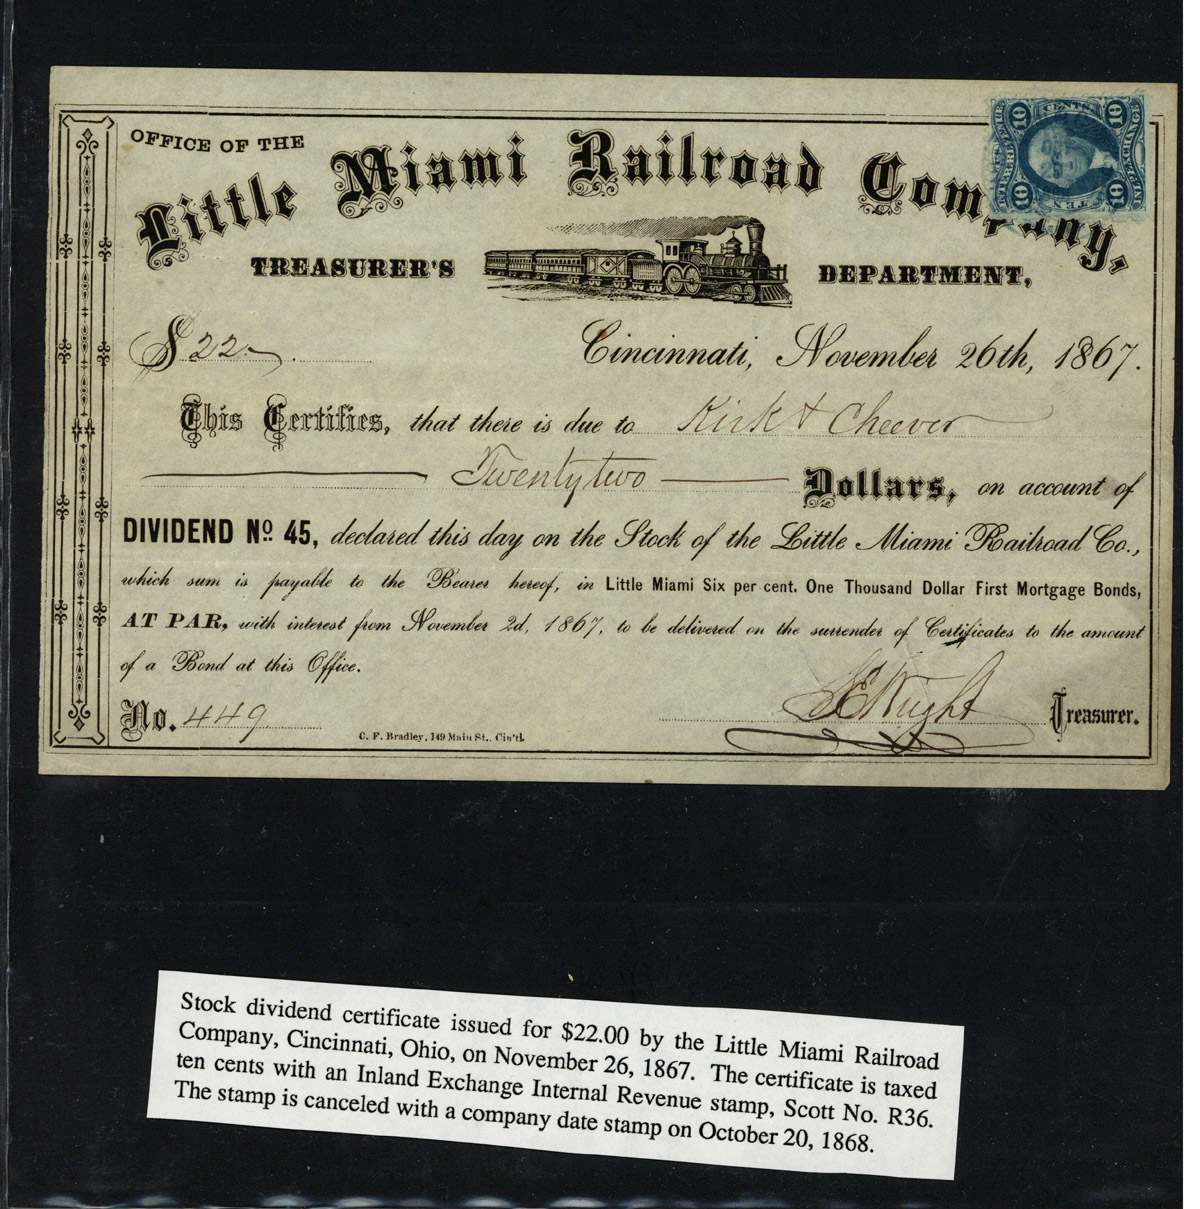 OFFICE OF THE
Little Miami Railroad Company,
10 CENTS 10
INTER. REVENUE
INL'D EXCHANGE
10 TEN 10
TREASURER'S DEPARTMENT,
$ 22. Cincinnati, November 26th, 1867.
This Certifies, that there is due to Kirk & Cheever
Twentytwo Dollars, on account of
DIVIDEND No. 45, declared this day on the Stock of the Little Miami Railroad Co.,
which sum is payable to the Bearer hereof, in Little Miami Six per cent. One Thousand Dollar First Mortgage Bonds,
AT PAR, with interest from November 2d, 1867, to be delivered on the surrender of Certificates to the amount
of a Bond at this Office.
No. 449 Wright Treasurer.
C. F. Bradley, 149 Main St., Cin'ti.
Stock dividend certificate issued for $22.00 by the Little Miami Railroad
Company, Cincinnati, Ohio, on November 26, 1867. The certificate is taxed
ten cents with an Inland Exchange Internal Revenue stamp, Scott No. R36.
The stamp is canceled with a company date stamp on October 20, 1868.